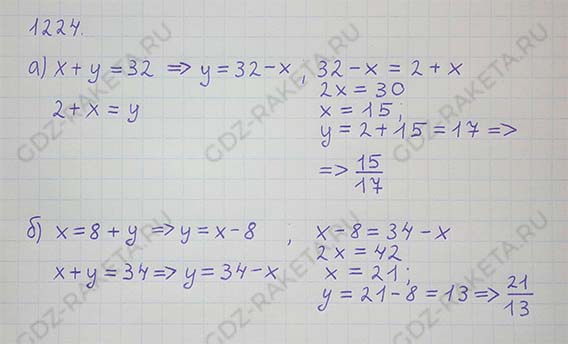 1224.
а) x + y = 32 => y = 32 - x ; 32 - x = 2 + x
2 + x = y
2x = 30
x = 15;
y = 2 + 15 = 17 =>
=> 15/17
б) x = 8 + y => y = x - 8 ; x - 8 = 34 - x
x + y = 34 => y = 34 - x
2x = 42
x = 21;
y = 21 - 8 = 13 => 21/13
GDZ-RAKETA.RU
GDZ-RAKETA.RU
GDZ-RAKETA.RU
GDZ-RAKETA.RU
GDZ-RAKETA.RU
GDZ-RAKETA.RU